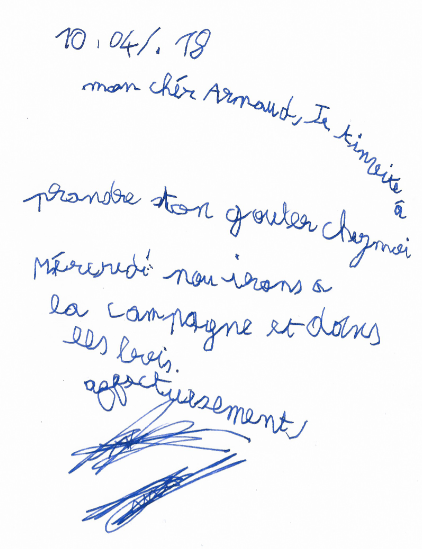 10.04/.18
mon chér Arnaud, Je t'invite à
prandre ston gouter chez moi
Mércredi nou irons a
la campagne et dans
les bois.
affectueusement,